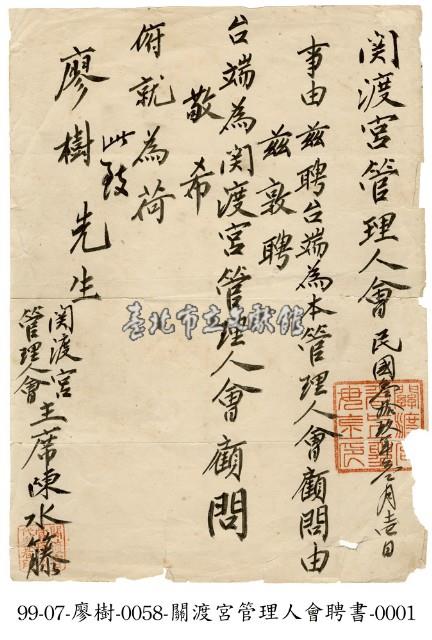 関渡宮管理人會 民國叁拾玖年 月壱日
事由 茲聘台端為本管理人會顧問由
茲敦聘
台端為関渡宮管理人會顧問
敬希
俯就為荷
此致
廖樹先生
関渡宮
管理人會
主席陳水籐
臺北市立文獻館
99-07-廖樹-0058-關渡宮管理人會聘書-0001